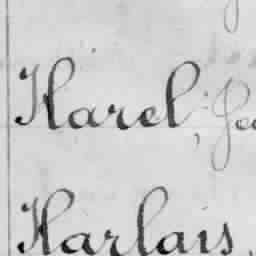 Harel,
Harlais,